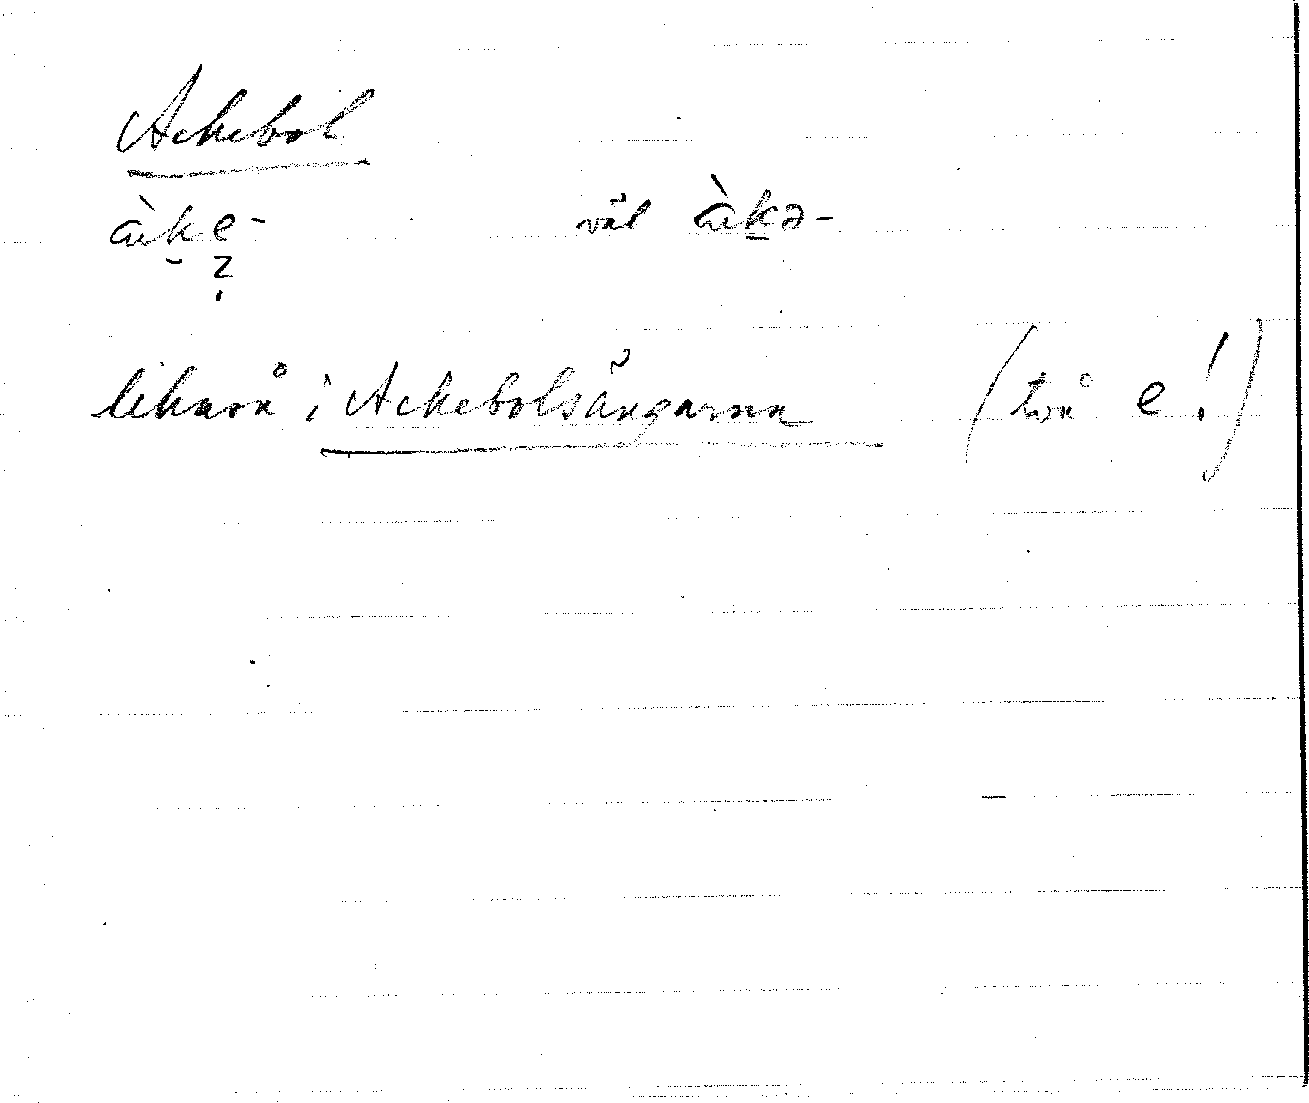 Ackebol
àk̮e-    väl àḵə-
?
likaså i Ackebolsängarna (två e!)